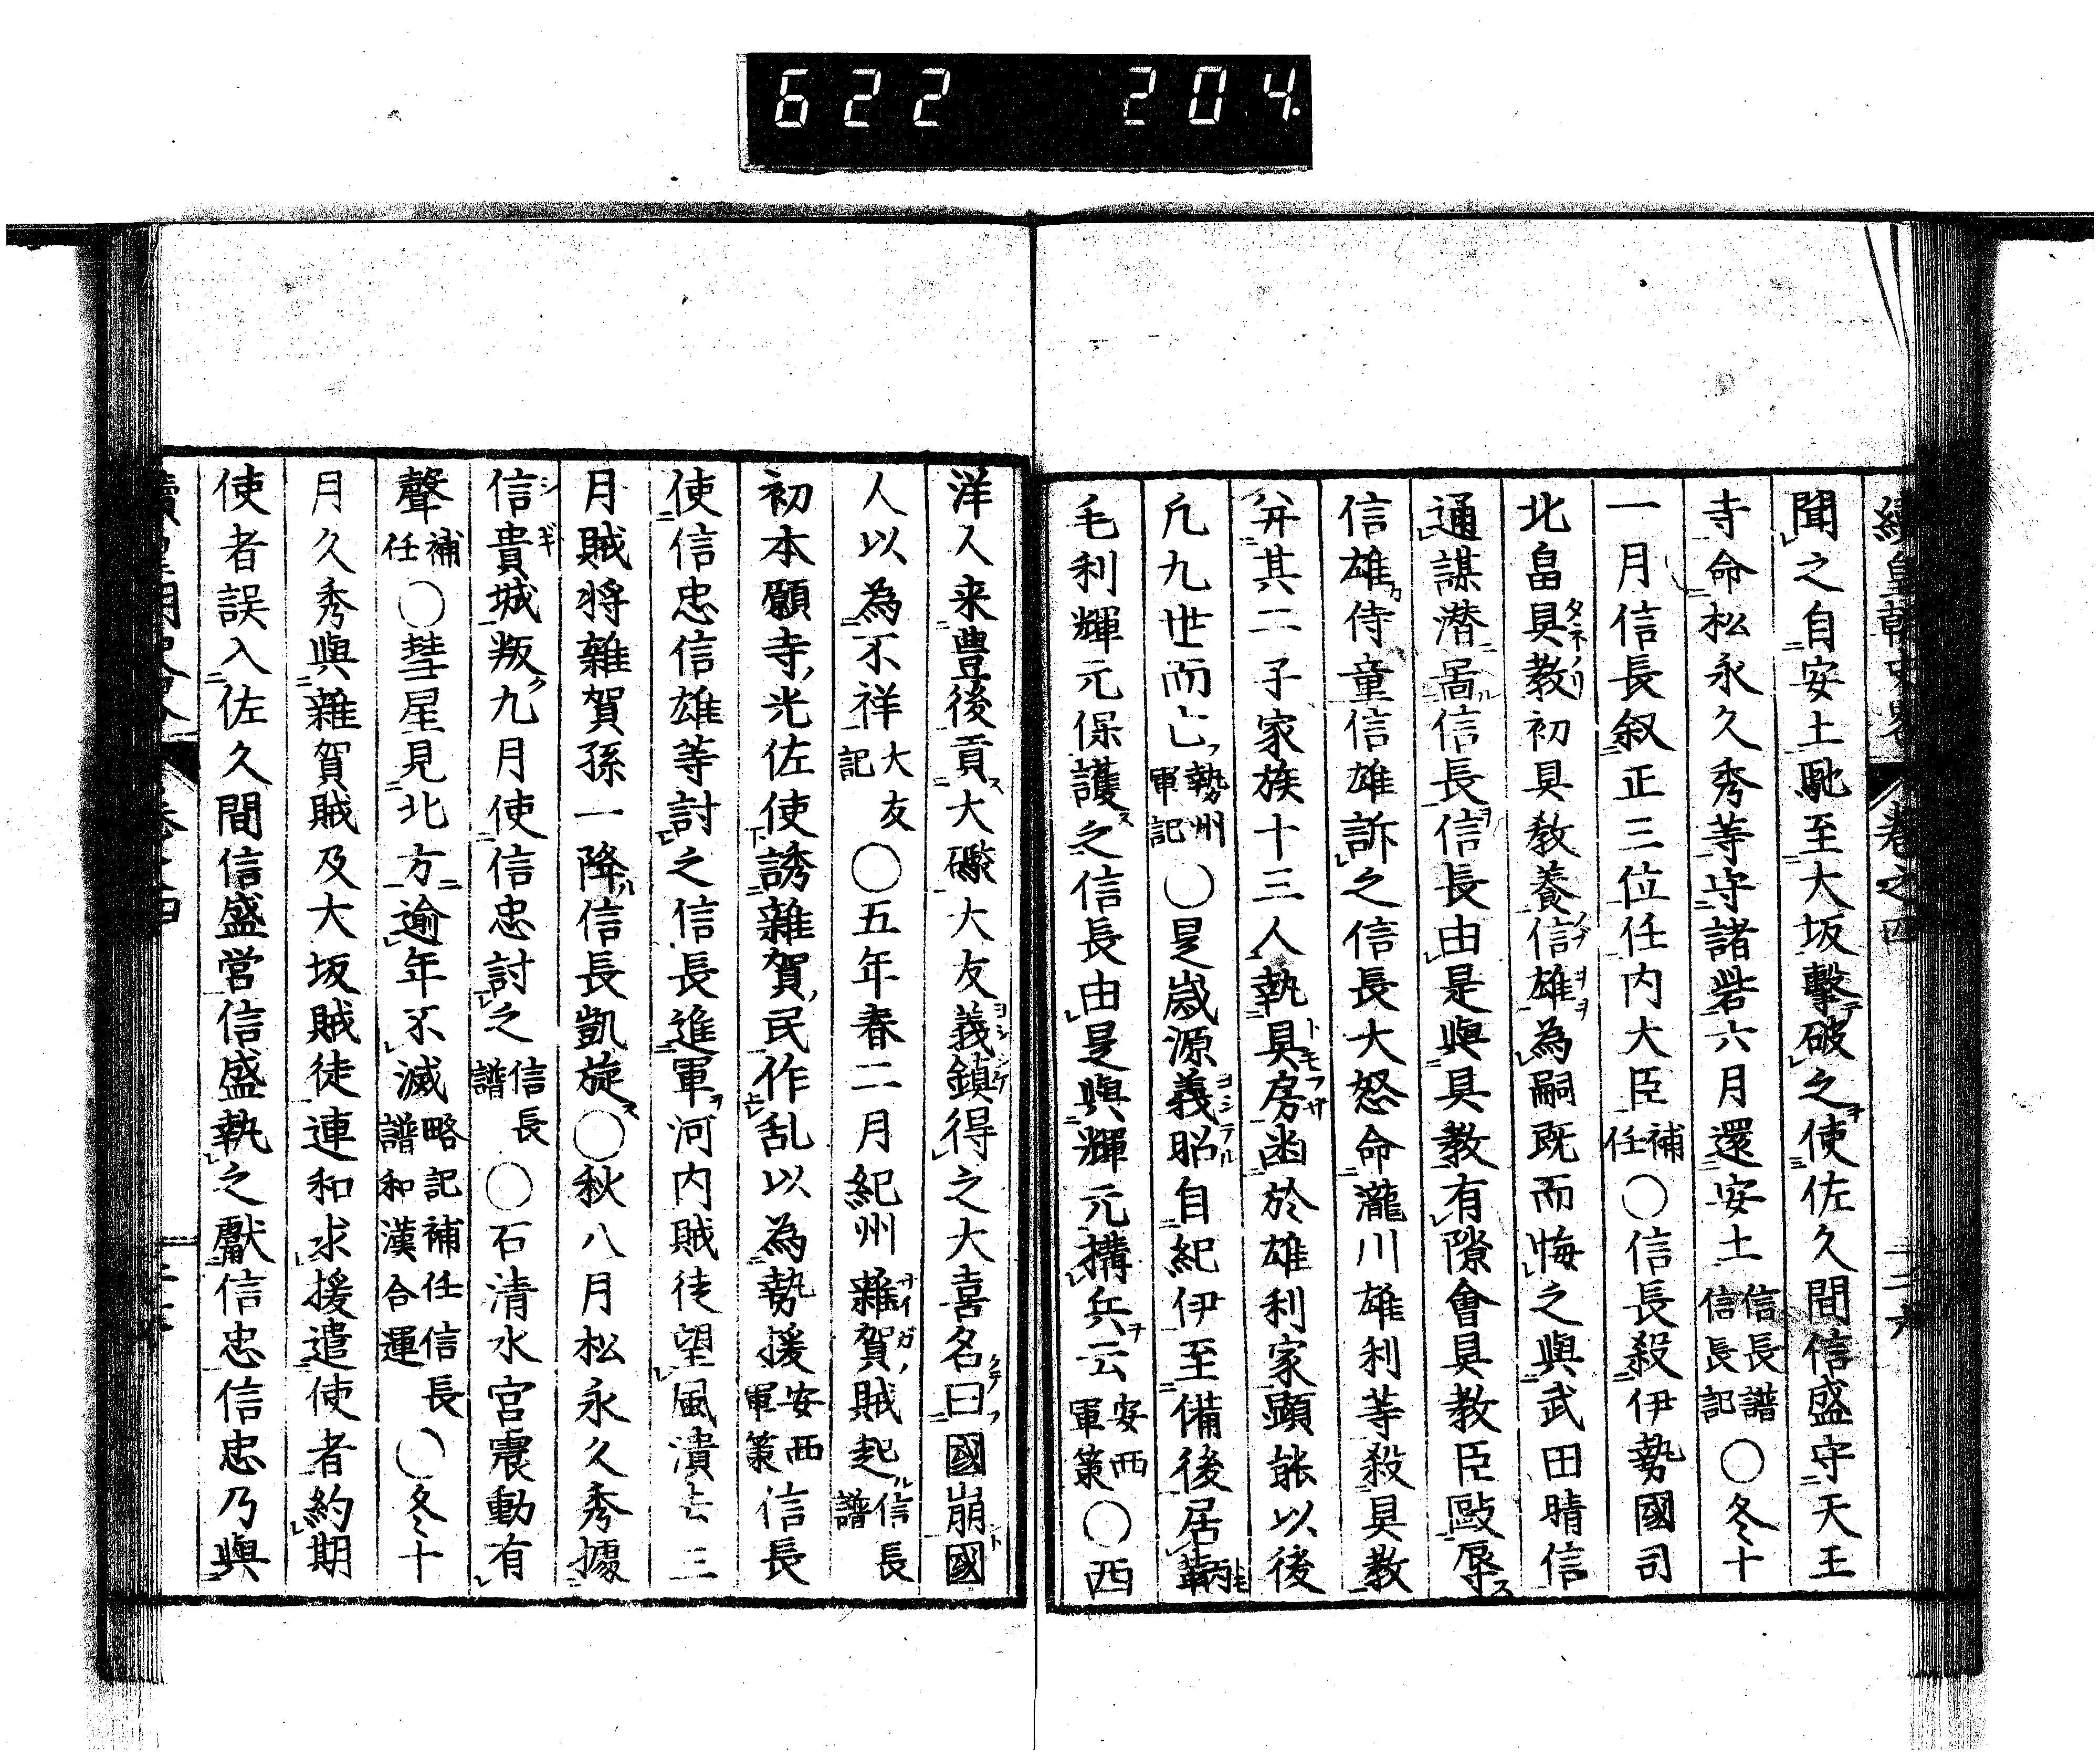 622 204.
續皇朝史畧 卷之四
聞之自安土馳至大坂擊破之使佐久間信盛守天王
寺命松永久秀等守諸砦六月還安土信長譜信長記〇冬十
一月信長叙正三位任内大臣補任〇信長殺伊勢國司
北畠具教初具教養信雄為嗣既而悔之與武田晴信
通謀潜啚信長信長由是與具教有隙會具教臣毆辱
信雄侍童信雄訴之信長大怒命瀧川雄利等殺具教
并其二子家族十三人執具房凾於雄利家顕能以後
凢九世而亡勢州軍記〇是歳源義昭自紀伊至備後居鞆
毛利輝元保護之信長由是與輝元搆兵云安西軍策〇西
洋人来豊後貢大礮大友義鎮得之大喜名曰國崩國
人以為不祥大友記〇五年春二月紀州雜賀賊起信長譜
初本願寺光佐使誘雜賀民作乱以為勢援安西軍策信長
使信忠信雄等討之信長進軍河内賊徒望風潰去三
月賊将雜賀孫一降信長凱旋〇秋八月松永久秀據
信貴城叛九月使信忠討之信長譜〇石清水宮震動有
聲補任〇彗星見北方逾年不滅略記補任信長譜和漢合運〇冬十
月久秀與雜賀賊及大坂賊徒連和求援遣使者約期
使者誤入佐久間信盛営信盛執之獻信忠信忠乃與